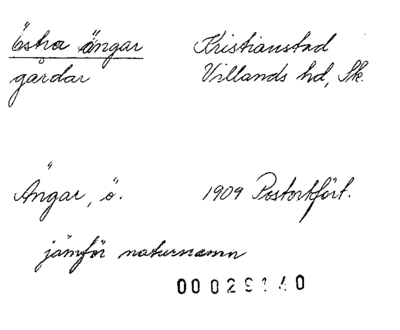 Östra ängar
Kristianstad
gårdar
Villands hd, Sk.
Ängar, ö.
1909 Postortfört.
jämför naturnamn